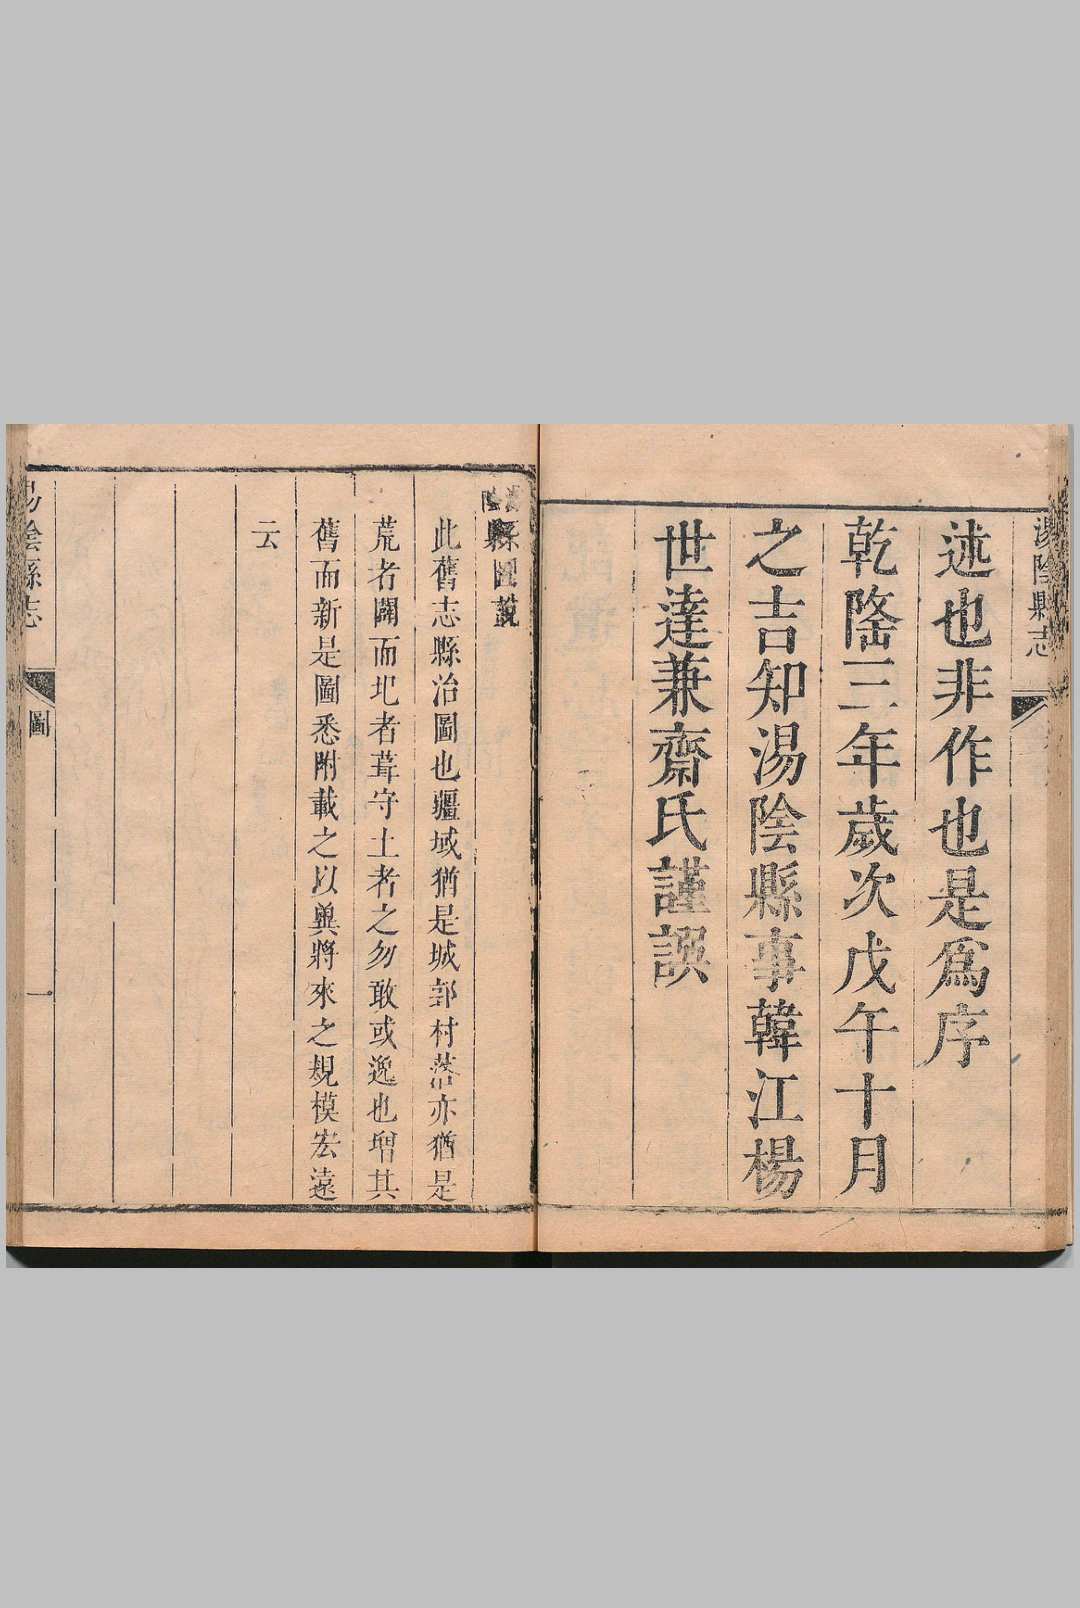 湯陰縣志
述也非作也是爲序
乾隆三年歲次戊午十月
之吉知湯陰縣事韓江楊
世達兼齋氏謹譔
縣圖說
此舊志縣治圖也疆域猶是城郭村落亦猶是
荒者闢而圮者葺守土者之勿敢或逸也增其
舊而新是圖悉附載之以兾將來之規模宏遠
云
陰縣志
圖
一